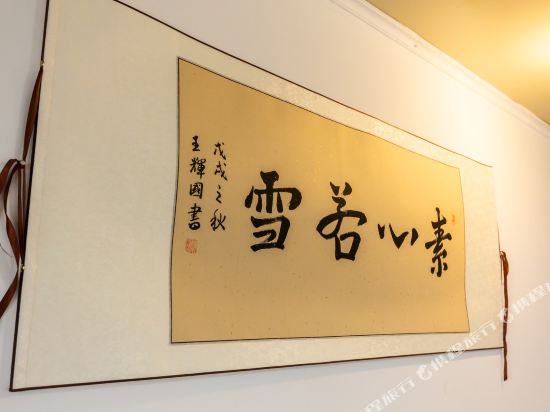 素心若雪
戊戌之秋
王輝國書
携程旅行